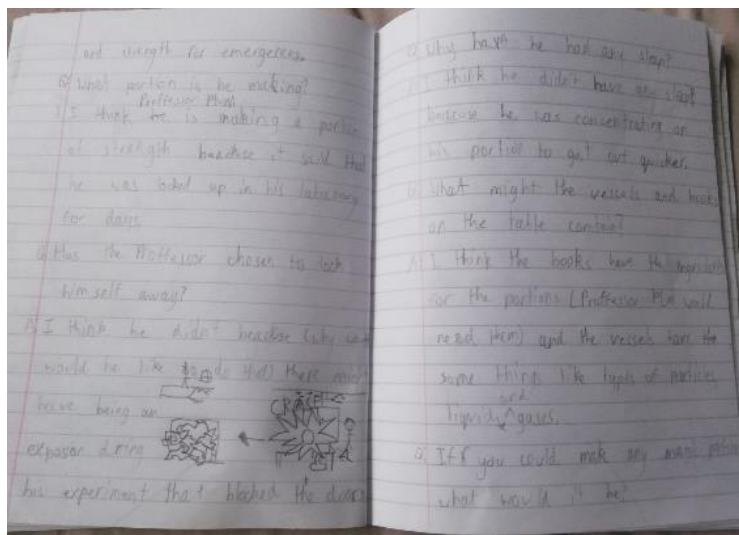 and strength for emergences.
Q What portion is he making?
Proffessor Plum
A I think he is making a portion
of strength beachse it said that
he was locked up in his labortory
for days
Q Has the Proffessor chosen to lock
himself away?
A I think he didn't beachse (why
would he like to do that) there might
have being an
CRACK
exposor dring
his experiment that blocked the doors
Q Why hasn't he had any sleep?
I think he didn't have any sleep
beacuse he was concentrating on
his portion to get out quicker.
Q What might the vessels and books
on the table contain?
A I think the books have the
for the portions (Proffessor Plum will
need them) and the vessels have the
some things like types of
and
liquids gases.
Q If you could make any magic
what would it be?